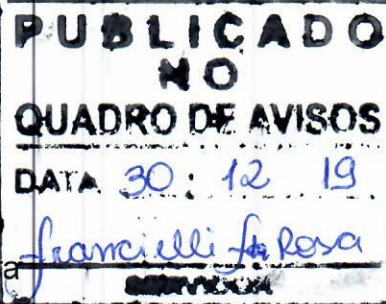 PUBLICADO
NO
QUADRO DE AVISOS
DATA 30 : 12 19
Francielli da Rosa
a
SERVIDOR